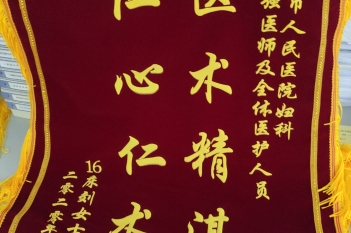 市人民医院妇科
强医师及全体医护人员
医术精湛
仁心仁术
16床刘女士
二零二零年